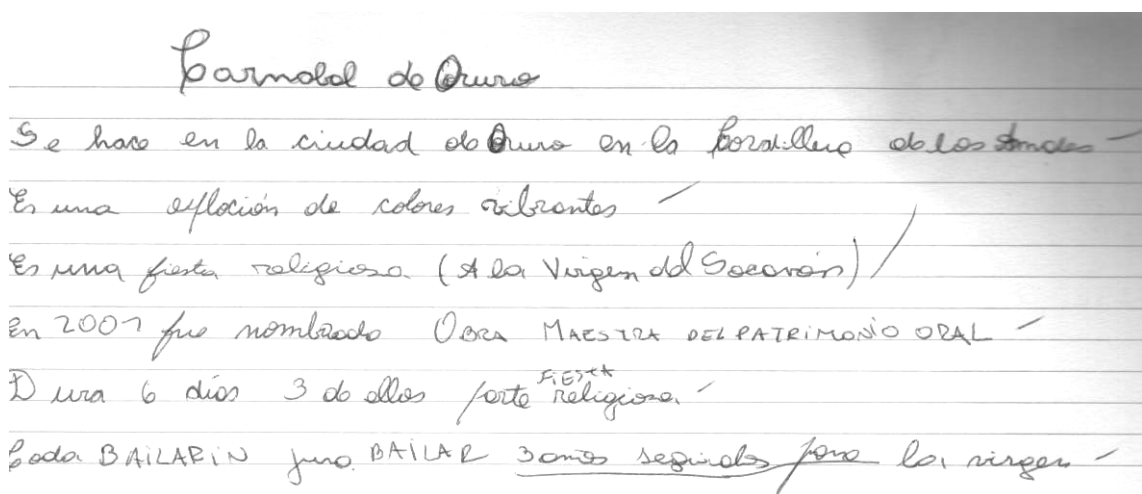 Carnabal de Oruro
Se hace en la ciudad de Oruro en la Cordillera de los Andes
Es una exploción de colores vibrantes
Es una fiesta religiosa (A la Virgen del Socavón)
En 2001 fue nombrado OBRA MAESTRA DEL PATRIMONIO ORAL
Dura 6 días 3 de ellos parte FIESTA religiosa.
Cada BAILARIN jura BAILAR 3 años seguidos para la virgen